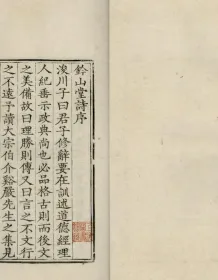 鈐山堂詩序
浚川子曰君子修辭要在訓述道德經理
人紀垂示政典尚也必品格古則而後文
之美備故曰理勝則傳又曰言之不文行
之不遠予讀大宗伯介谿嚴先生之集見